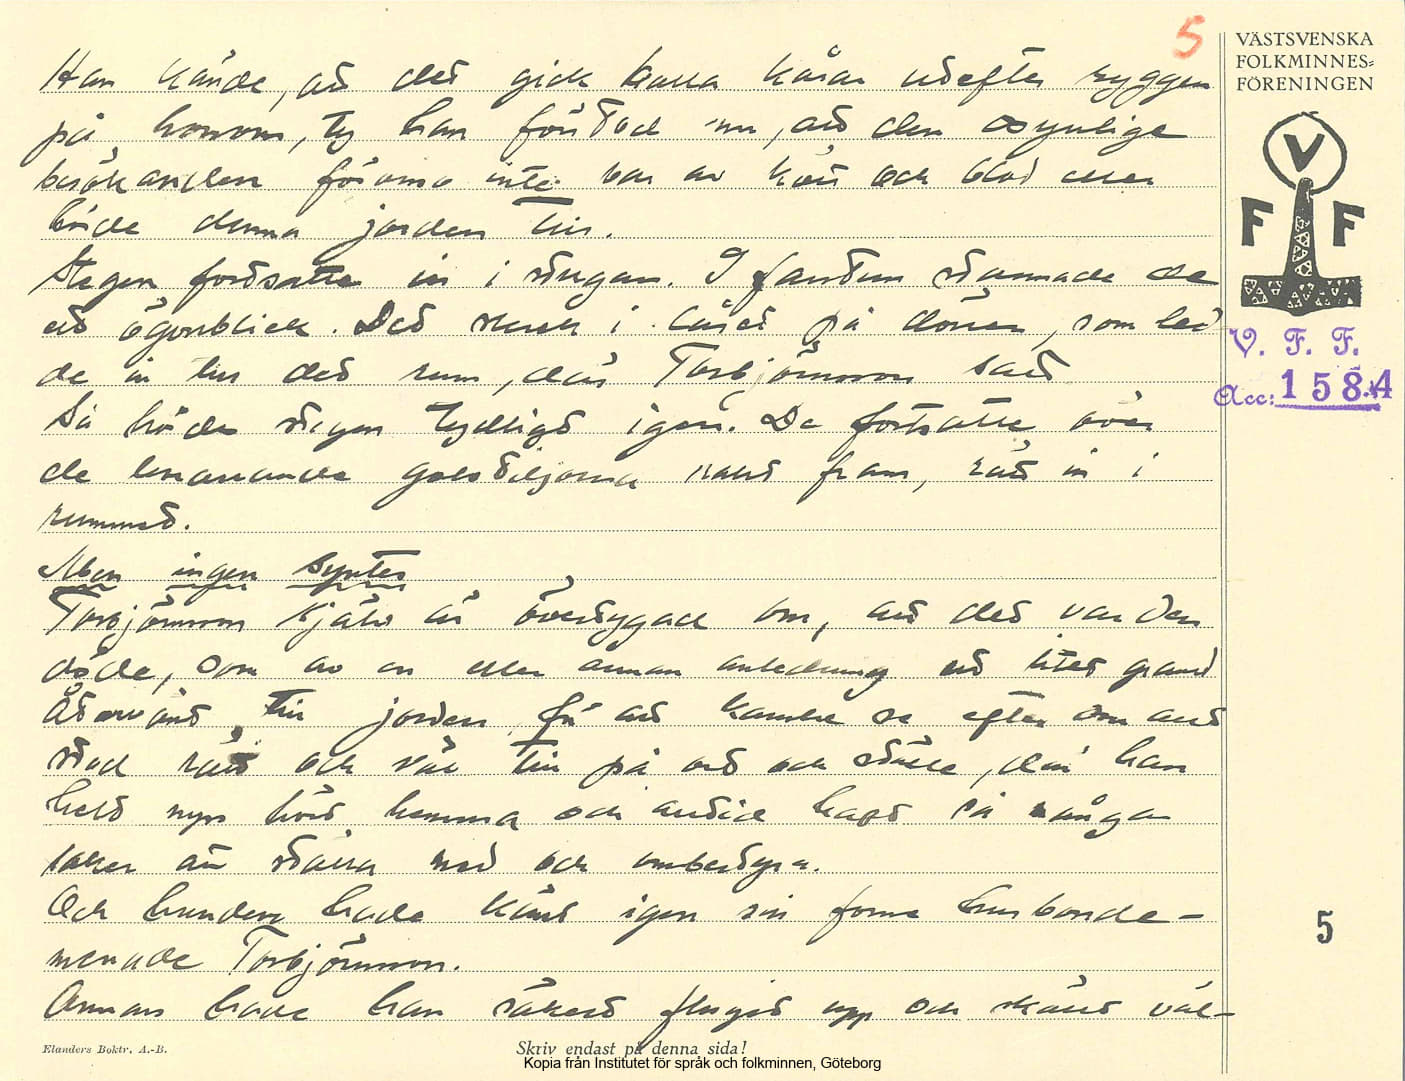 5
VÄSTSVENSKA
FOLKMINNES=
FÖRENINGEN
V
F F
V. F. F.
Acc: 1584
Han kände, att det gick kalla kårar utefter ryggen
på honom, ty han förstod nu, att den osynlige
besökanden inte var av kött och blod eller
hörde denna jorden till.
Stegen fortsatte in i stugan. I farstun stannade de
ett ögonblick. Det skrek i låset på dörren, som led
de in till det rum, där Torbjörnsson satt
Så hördes stegen tydligt igen. De fortsatte över
de knarrande golvtiljorna rakt fram, rätt in i
rummet.
Men ingen syntes
Torbjörnsson själv är övertygad om, att det var den
döde, som av en eller annan anledning ett litet grand
återvänt till jorden för att kanske se efter om allt
stod rätt och väl till på ort och ställe, där han
helt nyss hört hemma och alltid haft så många
saker att ställa med och ombestyra.
Och hunden hade känt igen sin forne husbonde -
menade Torbjörnsson.
Annars hade han säkert flugit upp och skällt väl-
5
Elanders Boktr. A.-B.
Skriv endast på denna sida!
Kopia från Institutet för språk och folkminnen, Göteborg